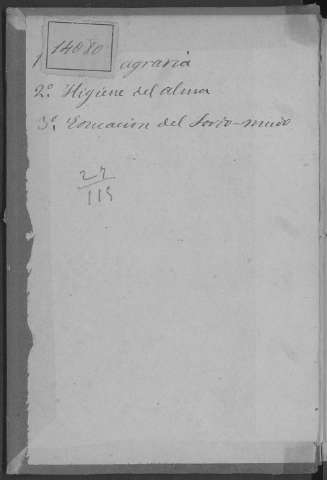 14080
1 agraria
2.º Higiene del alma
3.º Educación del Sordo-mudo
27
115